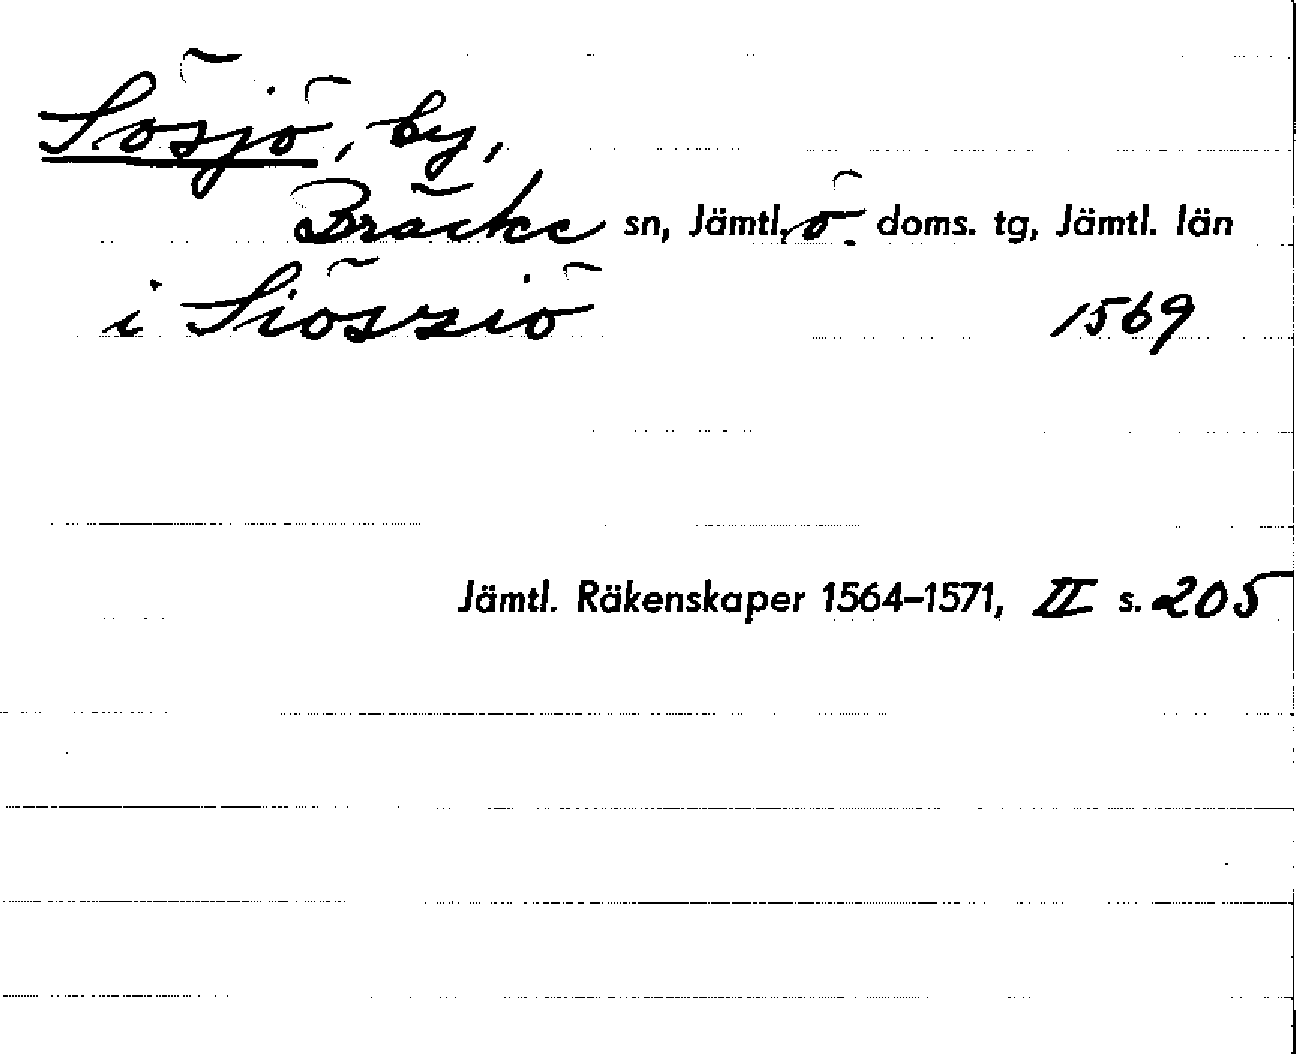 Sösjö, by,
Bräcke sn, Jämtl. ö. doms. tg, Jämtl. län
i Siössiö 1569
Jämtl. Räkenskaper 1564–1571, II s. 205